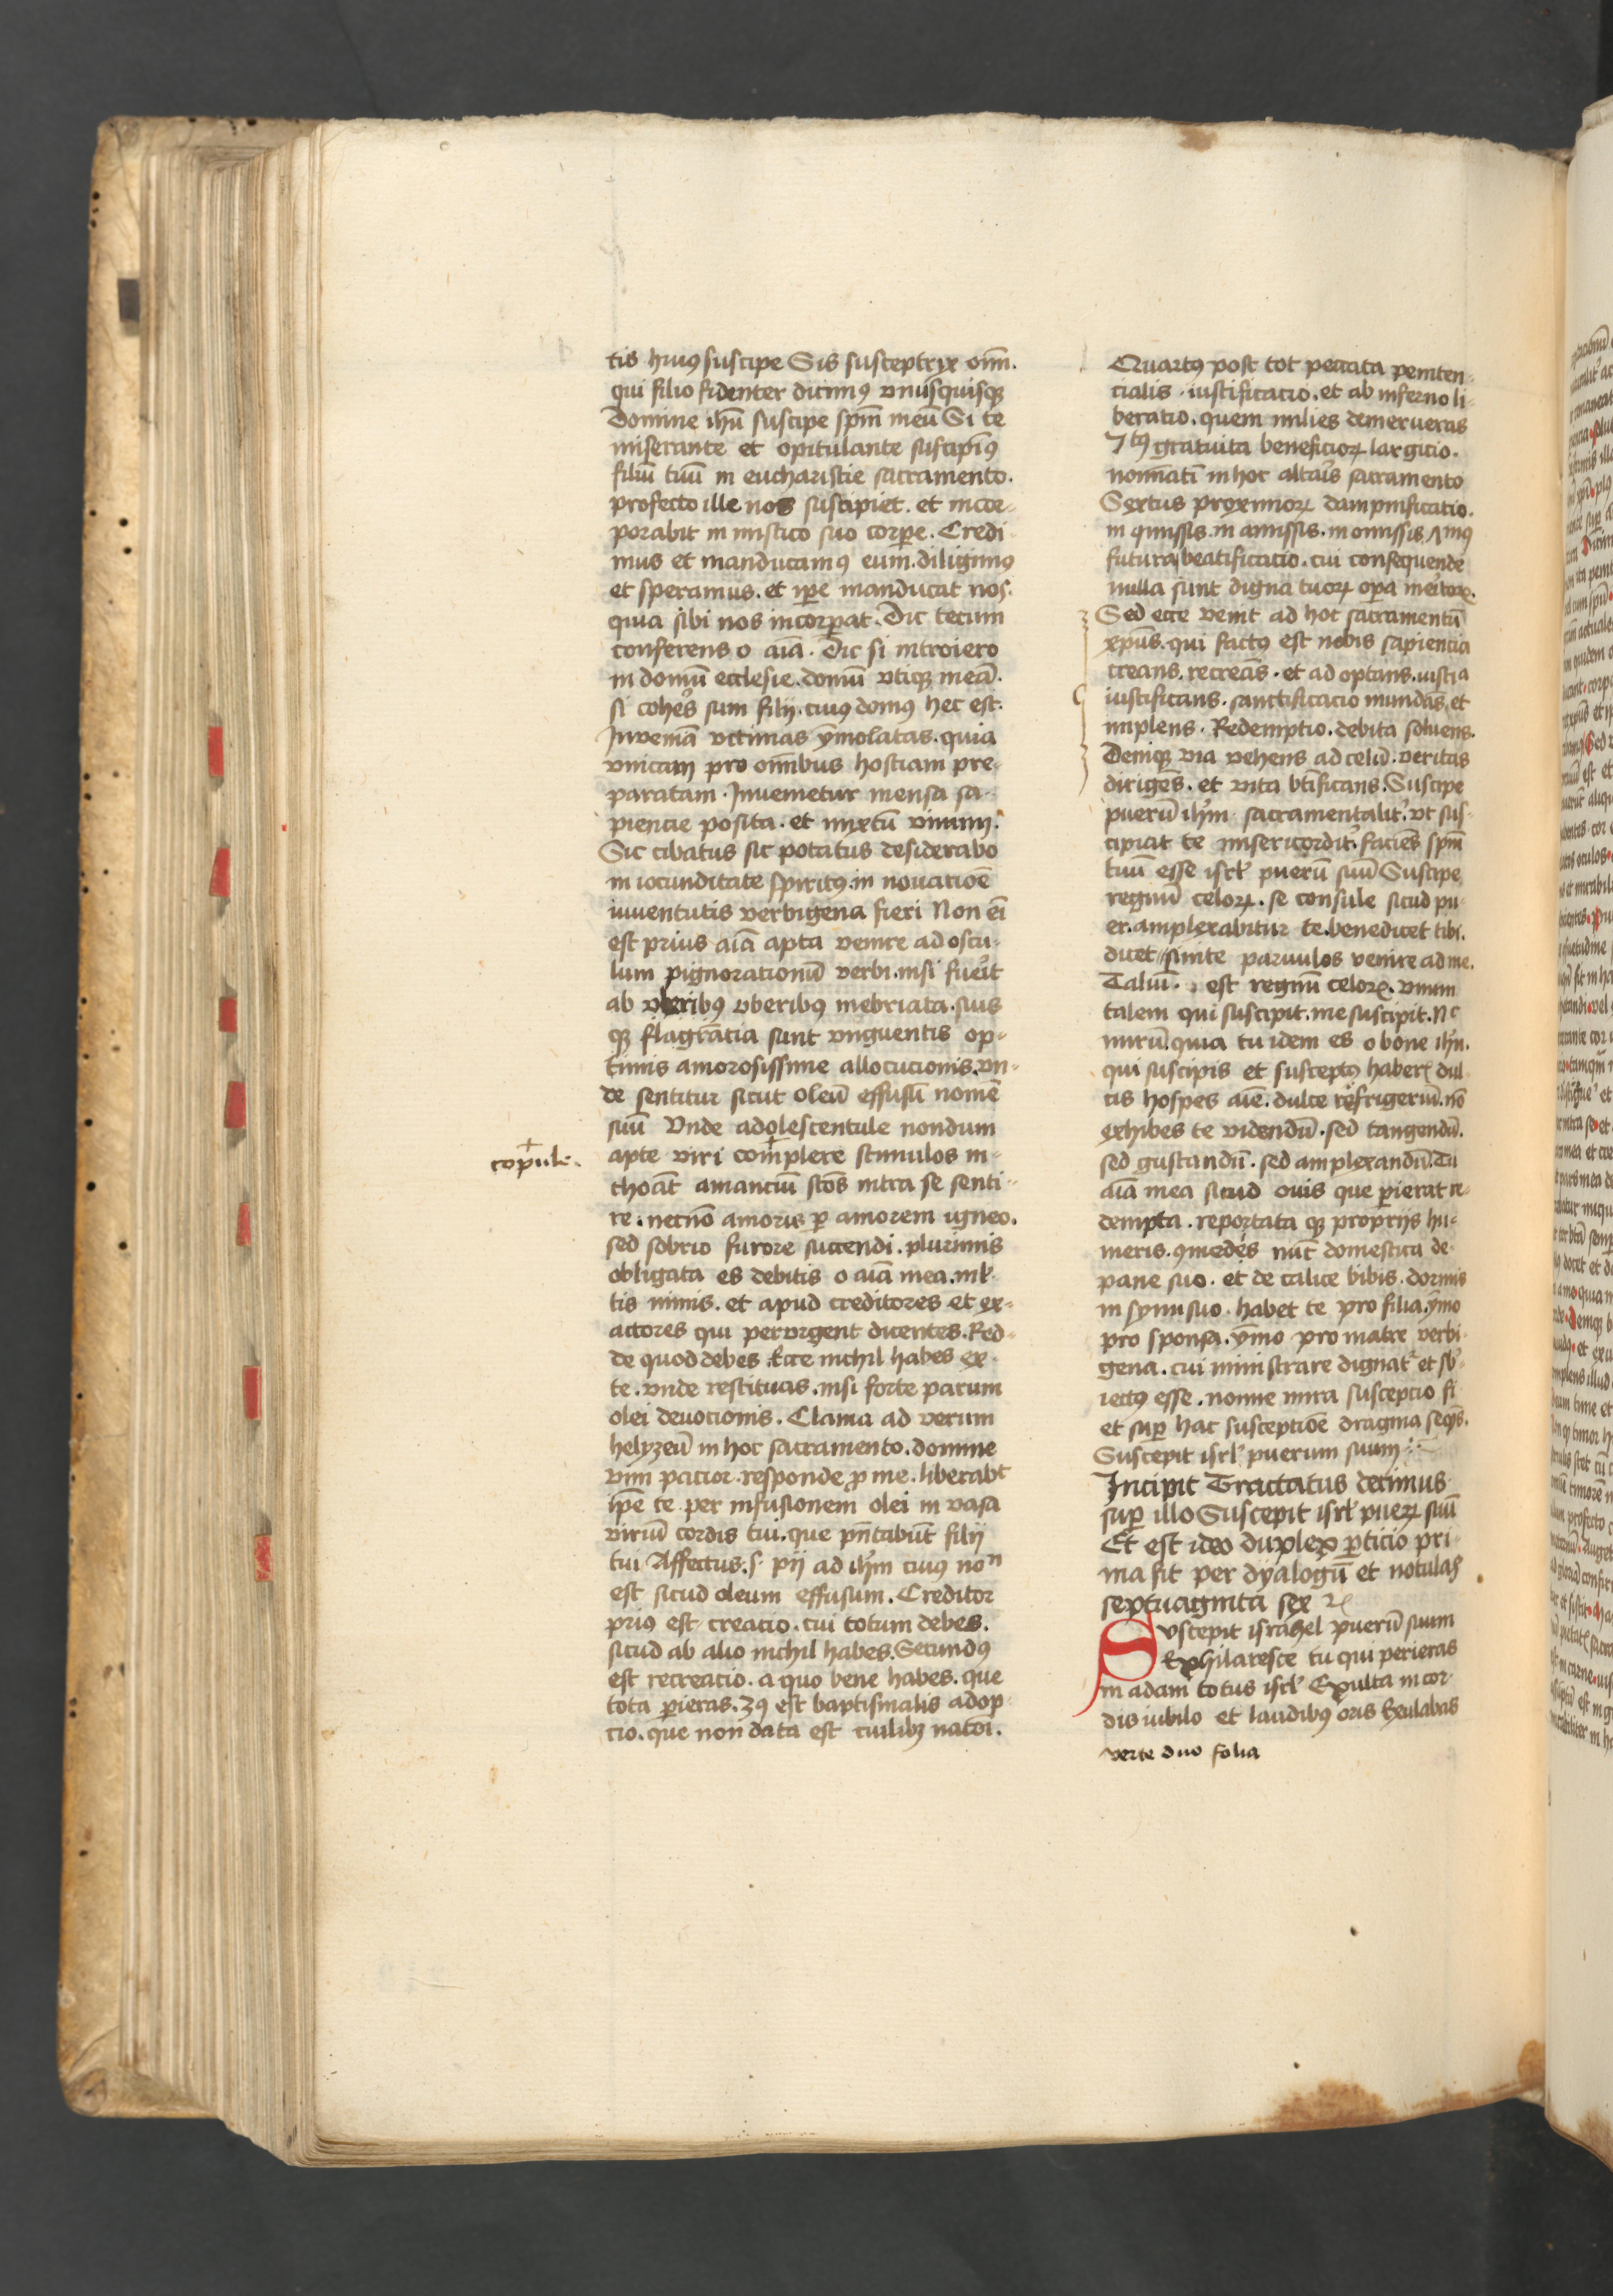 tis huiꝰ suscipe Sis susceptryx oīm.
qui filio fidenter dicimꝰ vnusquisqꝫ
Domine ihū suscipe spm̄ meū Si te
miserante et opitulante suscipimꝰ
filiū tuū in eucharistie sacramento.
profecto ille nos suscipiet. et incor-
porabit in mistico suo corꝑe. Credi-
mus et manducamꝰ eum. diligimꝰ
et speramus. et ip̄e manducat nos.
quia sibi nos incorꝑat. Dic tecum
conferens o aīa. Dic si introiero
in domū ecclesie. domū vtiqꝫ meā.
si coheˀs sum filij. cuiꝰ domꝰ hec est.
Inueniā victimas ymolatas. quia
vnicam pro om̄ibus hostiam pre-
paratam. Inuenietur mensa sa-
piencie posita. et mixtū vinum.
Sic cibatus sic potatus desiderabo
in iocunditate spiritꝰ. in nouacioē
iuuentutis verbigena fieri Non eī
est prius aīa apta venire ad oscu-
lum pignorationū verbi. nisi fueˀit
ab vberibꝰ vberibꝰ inebriata. suis
qꝫ flagrācia sunt vnguentis op-
timis amorosissime allocucionis. vn-
de sentitur sicut oleū effusū nomē
suū Vnde adolescentule nondum
copule.
apte viri complere stimulos in-
choāt amanciū sc̄os intra se senti-
re. necnō amoris ꝑ amorem igneo.
sed sobrio furore succendi. plurimis
obligata es debitis o aīa mea. ml̕-
tis nimis. et apud creditores et ex-
actores qui perurgent dicentes. Red-
de quod debes Ecce nichil habes ex
te. vnde restituas. nisi forte parum
olei deuocionis. Clama ad verum
helyzeū in hoc sacramento. domine
vim pacior. responde ꝓ me. liberabt
ip̄e te per infusionem olei in vasa
viriū cordis tui. que pn̄tabūt filij
tui Affectus. s. pij ad ihm̄ cuius noⁿ
est sicud oleum effusum. Creditor
priꝰ est creacio. cui totum debes.
sicud ab alio nichil habes. Secundꝰ
est recreacio. a quo bene habes. que
tota ꝑieras. 3ꝰ est baptismalis adop-
cio. que non data est cuilibꝫ natōi.
Quartꝰ post tot peccata peniten-
cialis iustificacio. et ab inferno li-
beratio. quem milies demerueras
7tꝰ gratuita beneficioꝝ largicio.
nomīatī in hoc altaˀis sacramento
Sextus proximioꝝ dampnificatio.
in qmissis. in amissis. in omissis. ʌmꝰ
futura beatificacio. cui consequende
nulla sunt digna tuoꝝ oꝑa meˀitoꝝ.
Sed ecce venit ad hoc sacramentū
xp̄us. qui factꝰ est nobis sapiencia
creans. recreās. et adoptans. iusticia
iustificans. sanctificacio mundās. et
implens. Redemptio. debita soluens.
Deniqꝫ via vehens ad celū. veritas
dirigēs. et vita btīficans. Suscipe
puerū ihm̄. sacramentalitˀ. vt sus-
cipiat te misericorditˀ. faciēs spm̄
tuū esse isrl̕ puerū suū Suscipe
regnū celoꝝ. se consule sicud pu-
er. amplexabitur te. benedicet tibi.
dicet sinite paruulos venire ad me.
Taliū. est regnū celoꝝ. vnum
talem qui suscipit. me suscipit. Nᶜ
mirū. quia tu idem es o bone ihū.
qui suscipis et susceptꝰ haberꝭ dul-
cis hospes aīe. dulce refrigeriū. nō
exhibes te videndū. sed tangendū.
sed gustandū. sed amplexandū. Tu
aīa mea sicud ouis que ꝑierat re-
dempta. reportata qꝫ proprijs hu-
meris. ꝯmedes nūc domestica de
pane suo. et de calice bibis. dormis
in synu suo. habet te pro filia. ymo
pro sponsa. ymo pro matre verbi-
gena. cui ministrare dignatˀ et sb̕-
iectꝰ esse. nonne mira suscepcio si
et suꝑ hac susceptiōe dragma seqˀs.
Suscepit isrl̕ puerum suum
Incipit Tractatus decimus
suꝑ illo Suscepit isrl̕ pueꝝ suū
Et est ideo duplex ꝑticio pri-
ma fit per dyalogū et notulas
septuaginta sex
Vscepit israhel puerū suum
Exhilaresce tu qui perieras
in adam totus isrl̕ Exulta in cor-
dis iubilo et laudibꝰ oris Exulabas
verte duo folia